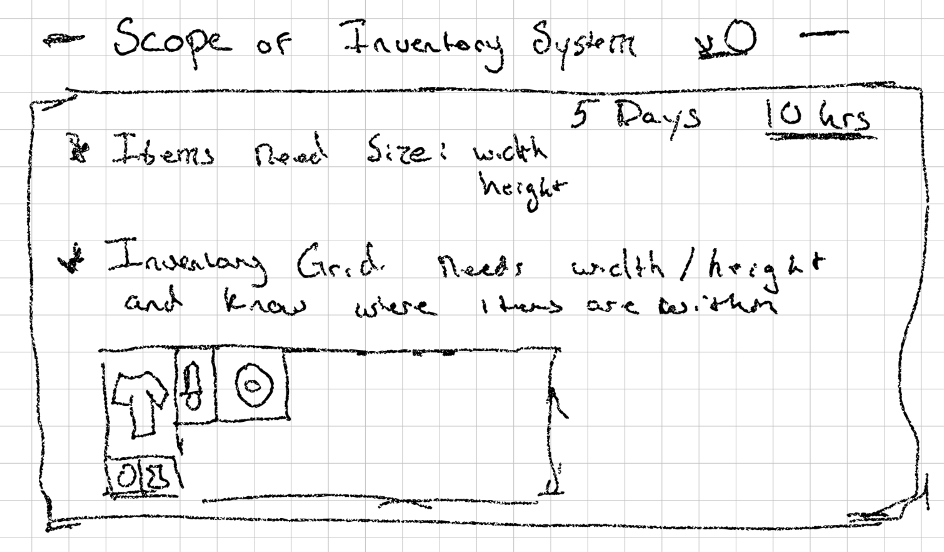 - Scope of Inventory System v0 -
5 Days 10 hrs
* Items need size: width
height
* Inventory Grid needs width/height
and know where items are within